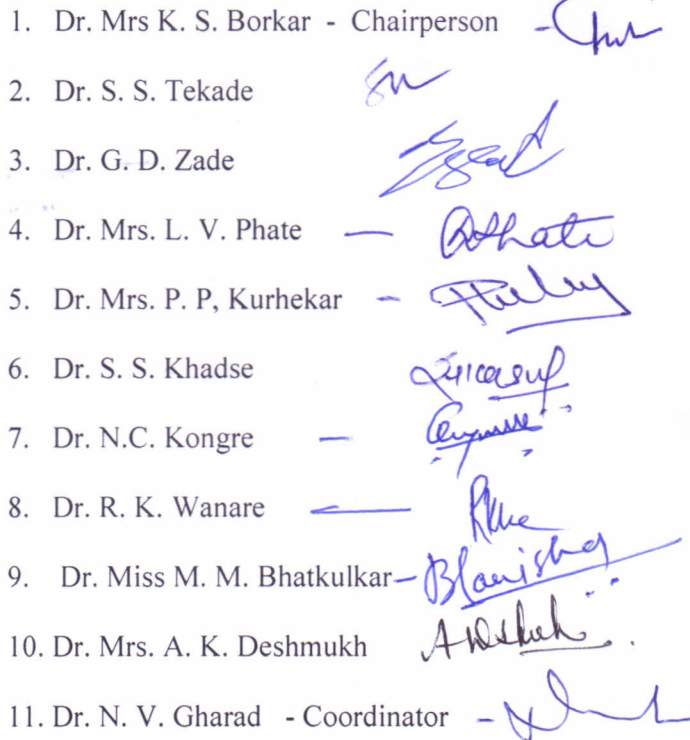 1. Dr. Mrs K. S. Borkar - Chairperson -
2. Dr. S. S. Tekade
3. Dr. G. D. Zade
4. Dr. Mrs. L. V. Phate —
5. Dr. Mrs. P. P, Kurhekar -
6. Dr. S. S. Khadse
7. Dr. N.C. Kongre —
8. Dr. R. K. Wanare —
9. Dr. Miss M. M. Bhatkulkar—
10. Dr. Mrs. A. K. Deshmukh
11. Dr. N. V. Gharad - Coordinator -